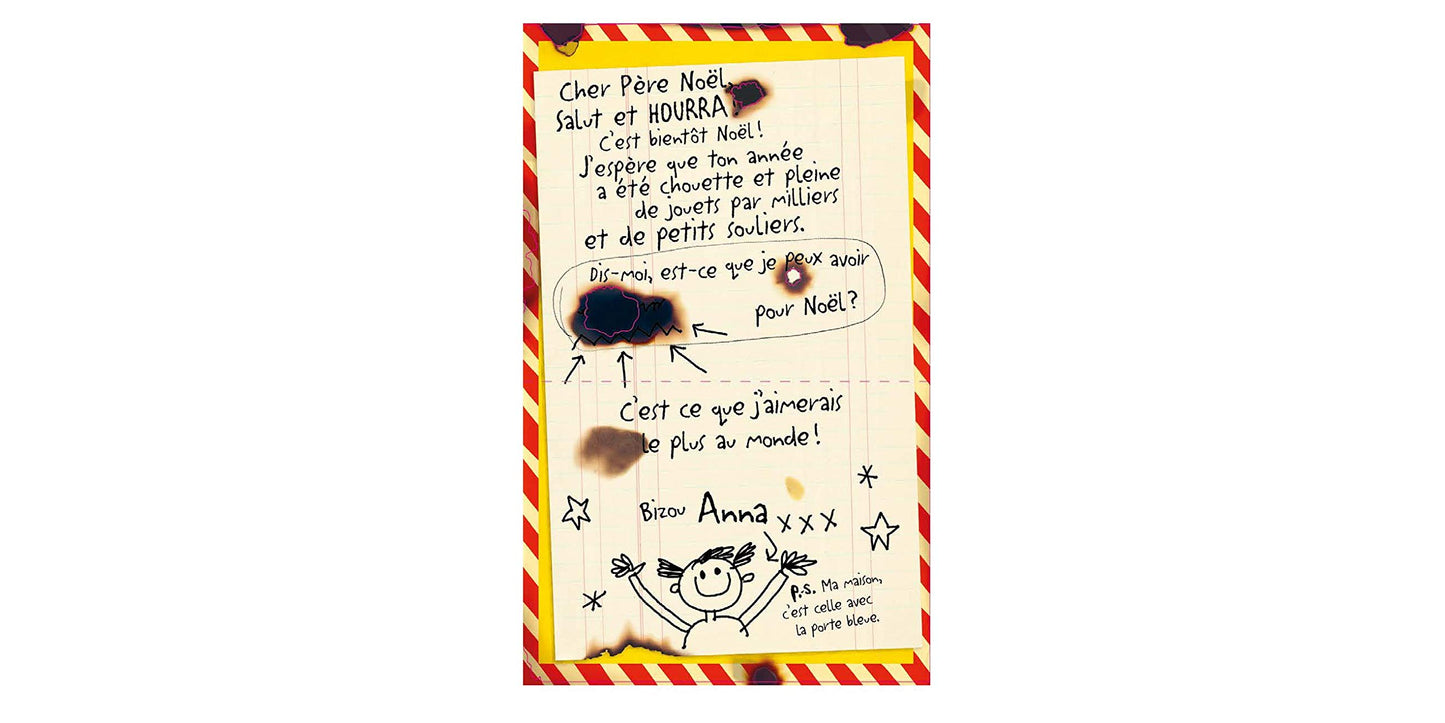 Cher Père Noël,
Salut et HOURRA !
C'est bientôt Noël !
J'espère que ton année
a été chouette et pleine
de jouets par milliers
et de petits souliers.
Dis-moi, est-ce que je peux avoir
pour Noël ?
C'est ce que j'aimerais
le plus au monde !
Bizou Anna xxx
p.s. Ma maison,
c'est celle avec
la porte bleue.